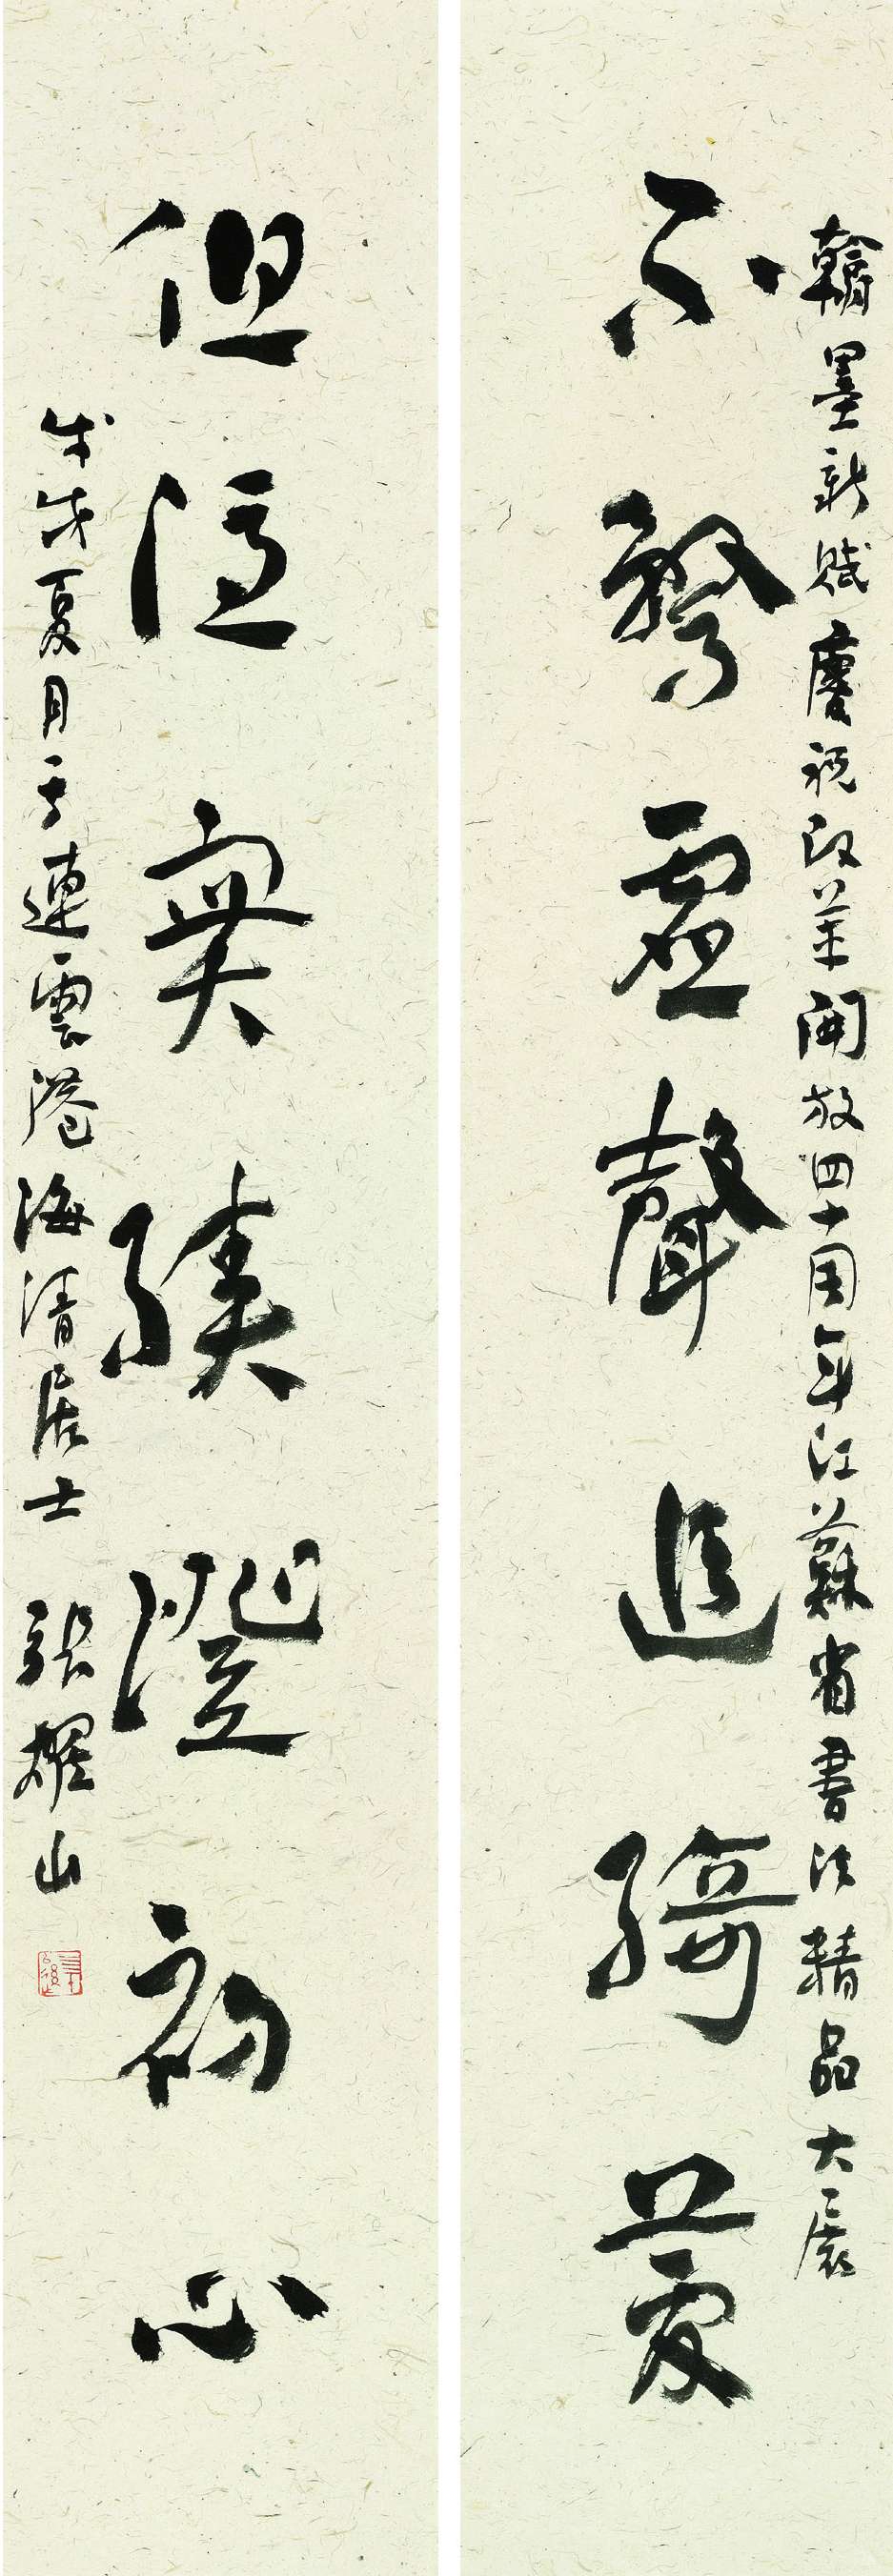 翰墨新賦慶祝改革開放四十周年江蘇省書法精品大展
不務虛聲追綺夢
但憑實績證初心
戊戌夏月于連雲港海清居士張耀山